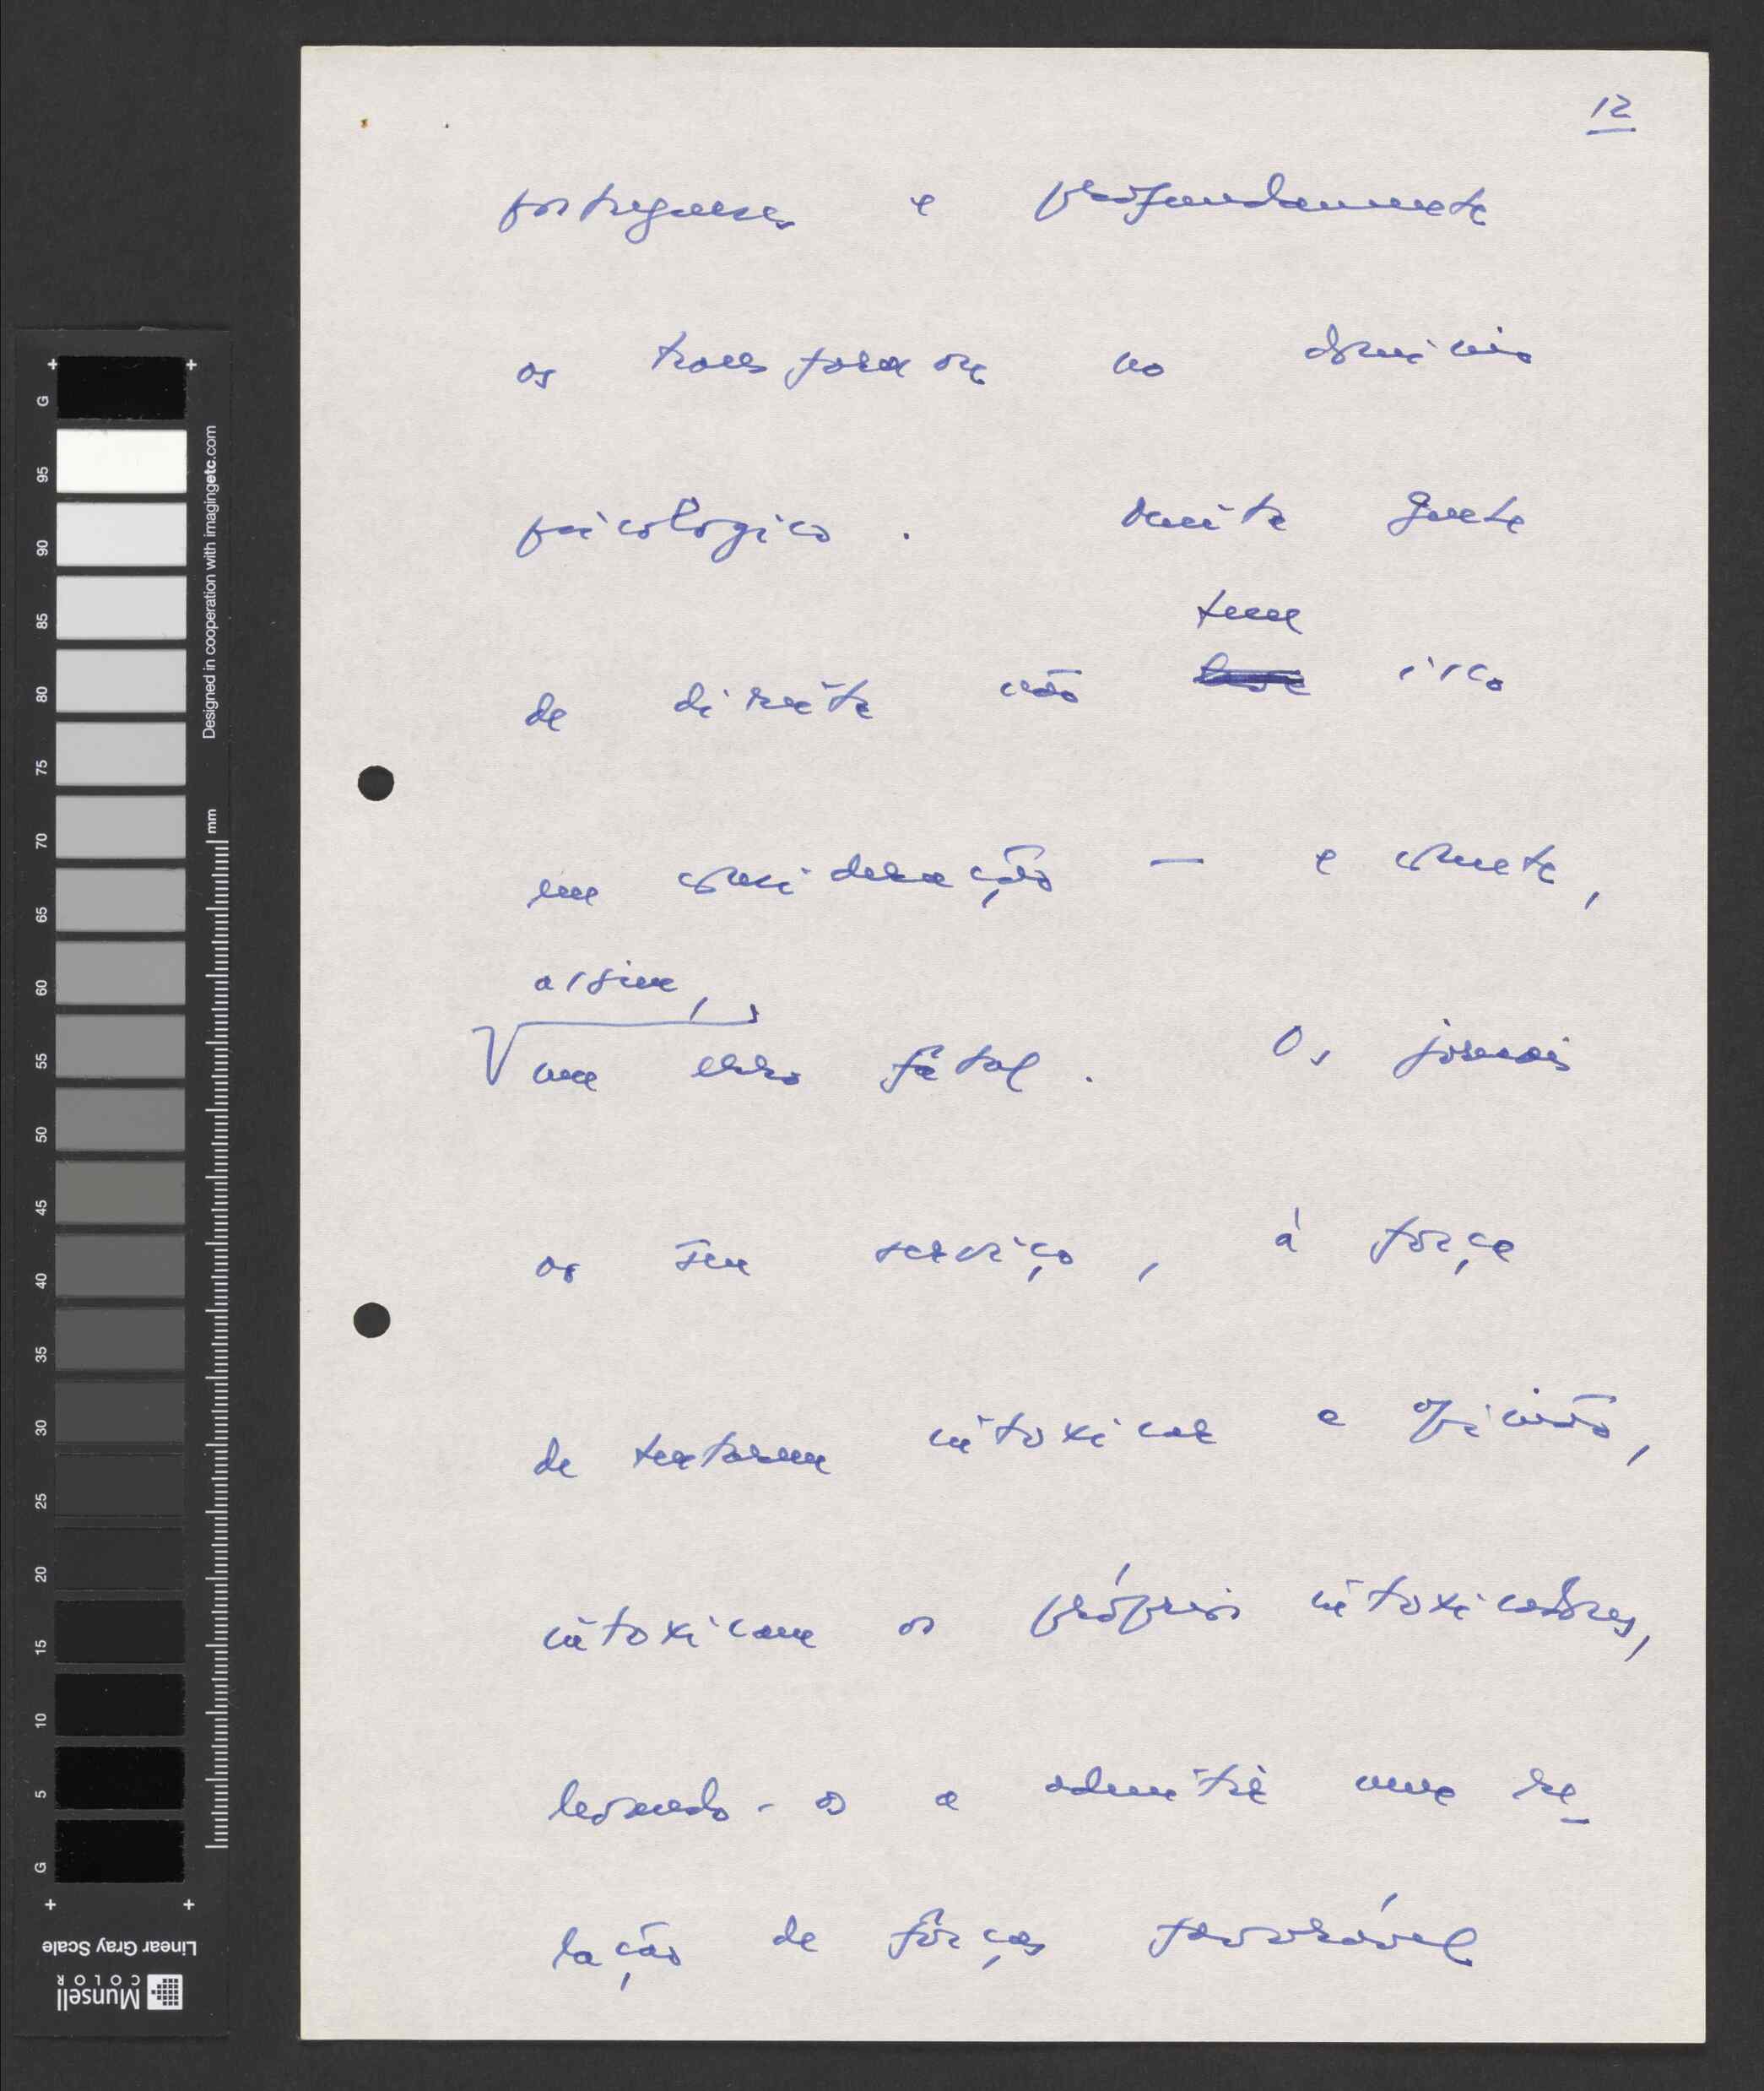 12
portugueses e profundamente
os transforma no domínio
psicologico. Muita gente
tem
de direita não isso
em consideração — e comete,
assim,
um erro fatal. Os jornais
ao seu serviço, à força
de tentarem intoxicar a opinião,
intoxicam os próprios intoxicadores,
levando-os a admitir uma re-
lação de forças favorável
G
95
90
85
80
75
70
65
60
55
50
45
40
35
30
25
20
15
10
5
G
Designed in cooperation with imagingetc.com
mm
Linear Gray Scale
Munsell
COLOR